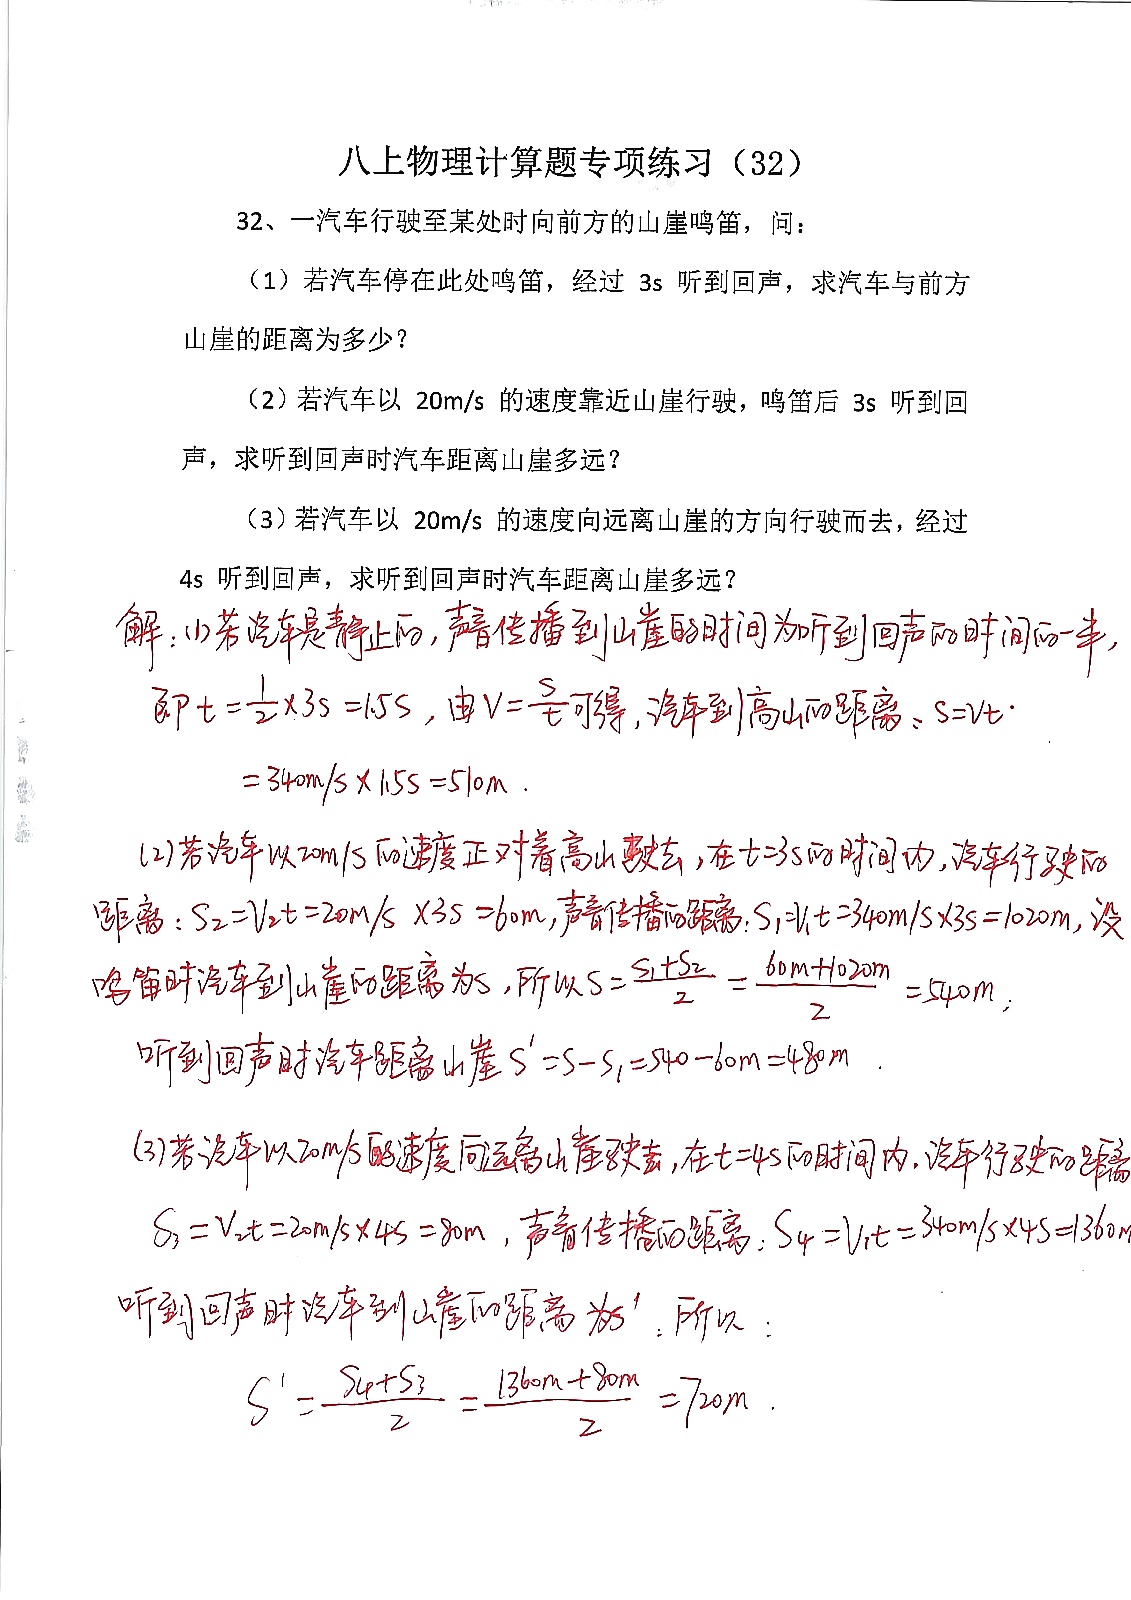 八上物理计算题专项练习（32）
32、一汽车行驶至某处时向前方的山崖鸣笛，问：
（1）若汽车停在此处鸣笛，经过 3s 听到回声，求汽车与前方
山崖的距离为多少？
（2）若汽车以 20m/s 的速度靠近山崖行驶，鸣笛后 3s 听到回
声，求听到回声时汽车距离山崖多远？
（3）若汽车以 20m/s 的速度向远离山崖的方向行驶而去，经过
4s 听到回声，求听到回声时汽车距离山崖多远？
解：(1)若汽车是静止的，声音传播到山崖的时间为听到回声的时间的一半，
即t=1/2×3s=1.5s，由V=s/t可得，汽车到高山的距离：S=Vt
=340m/s×1.5s=510m．
(2)若汽车以20m/s的速度正对着高山驶去，在t=3s的时间内，汽车行驶的
距离：S2=V2t=20m/s×3s=60m，声音传播的距离：S1=V1t=340m/s×3s=1020m，设
鸣笛时汽车到山崖的距离为S，所以S=(S1+S2)/2=(60m+1020m)/2=540m；
听到回声时汽车距离山崖S'=S-S1=540-60m=480m．
(3)若汽车以20m/s的速度向远离山崖驶去，在t=4s的时间内，汽车行驶的距离
S3=V2t=20m/s×4s=80m，声音传播的距离：S4=V1t=340m/s×4s=1360m
听到回声时汽车到山崖的距离为s'，所以：
S'=(S4+S3)/2=(1360m+80m)/2=720m．